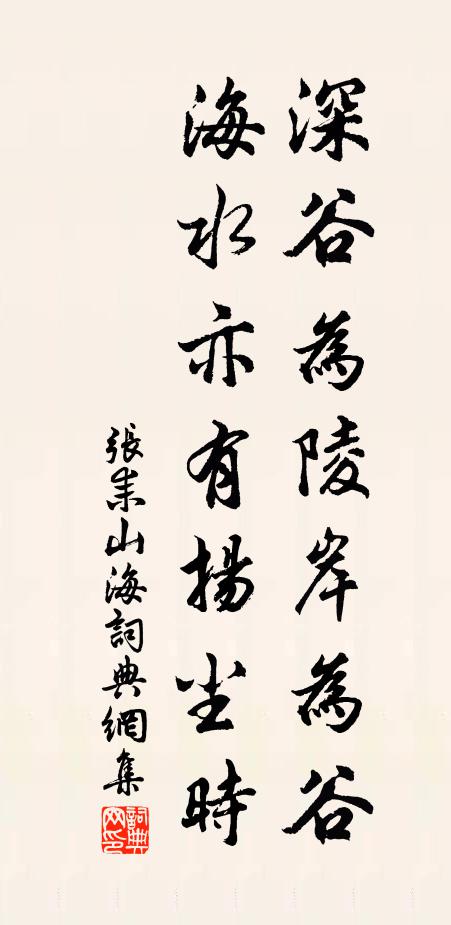 深谷為陵岸為谷
海水亦有揚尘時
張耒山海詞典網集
詞典網印